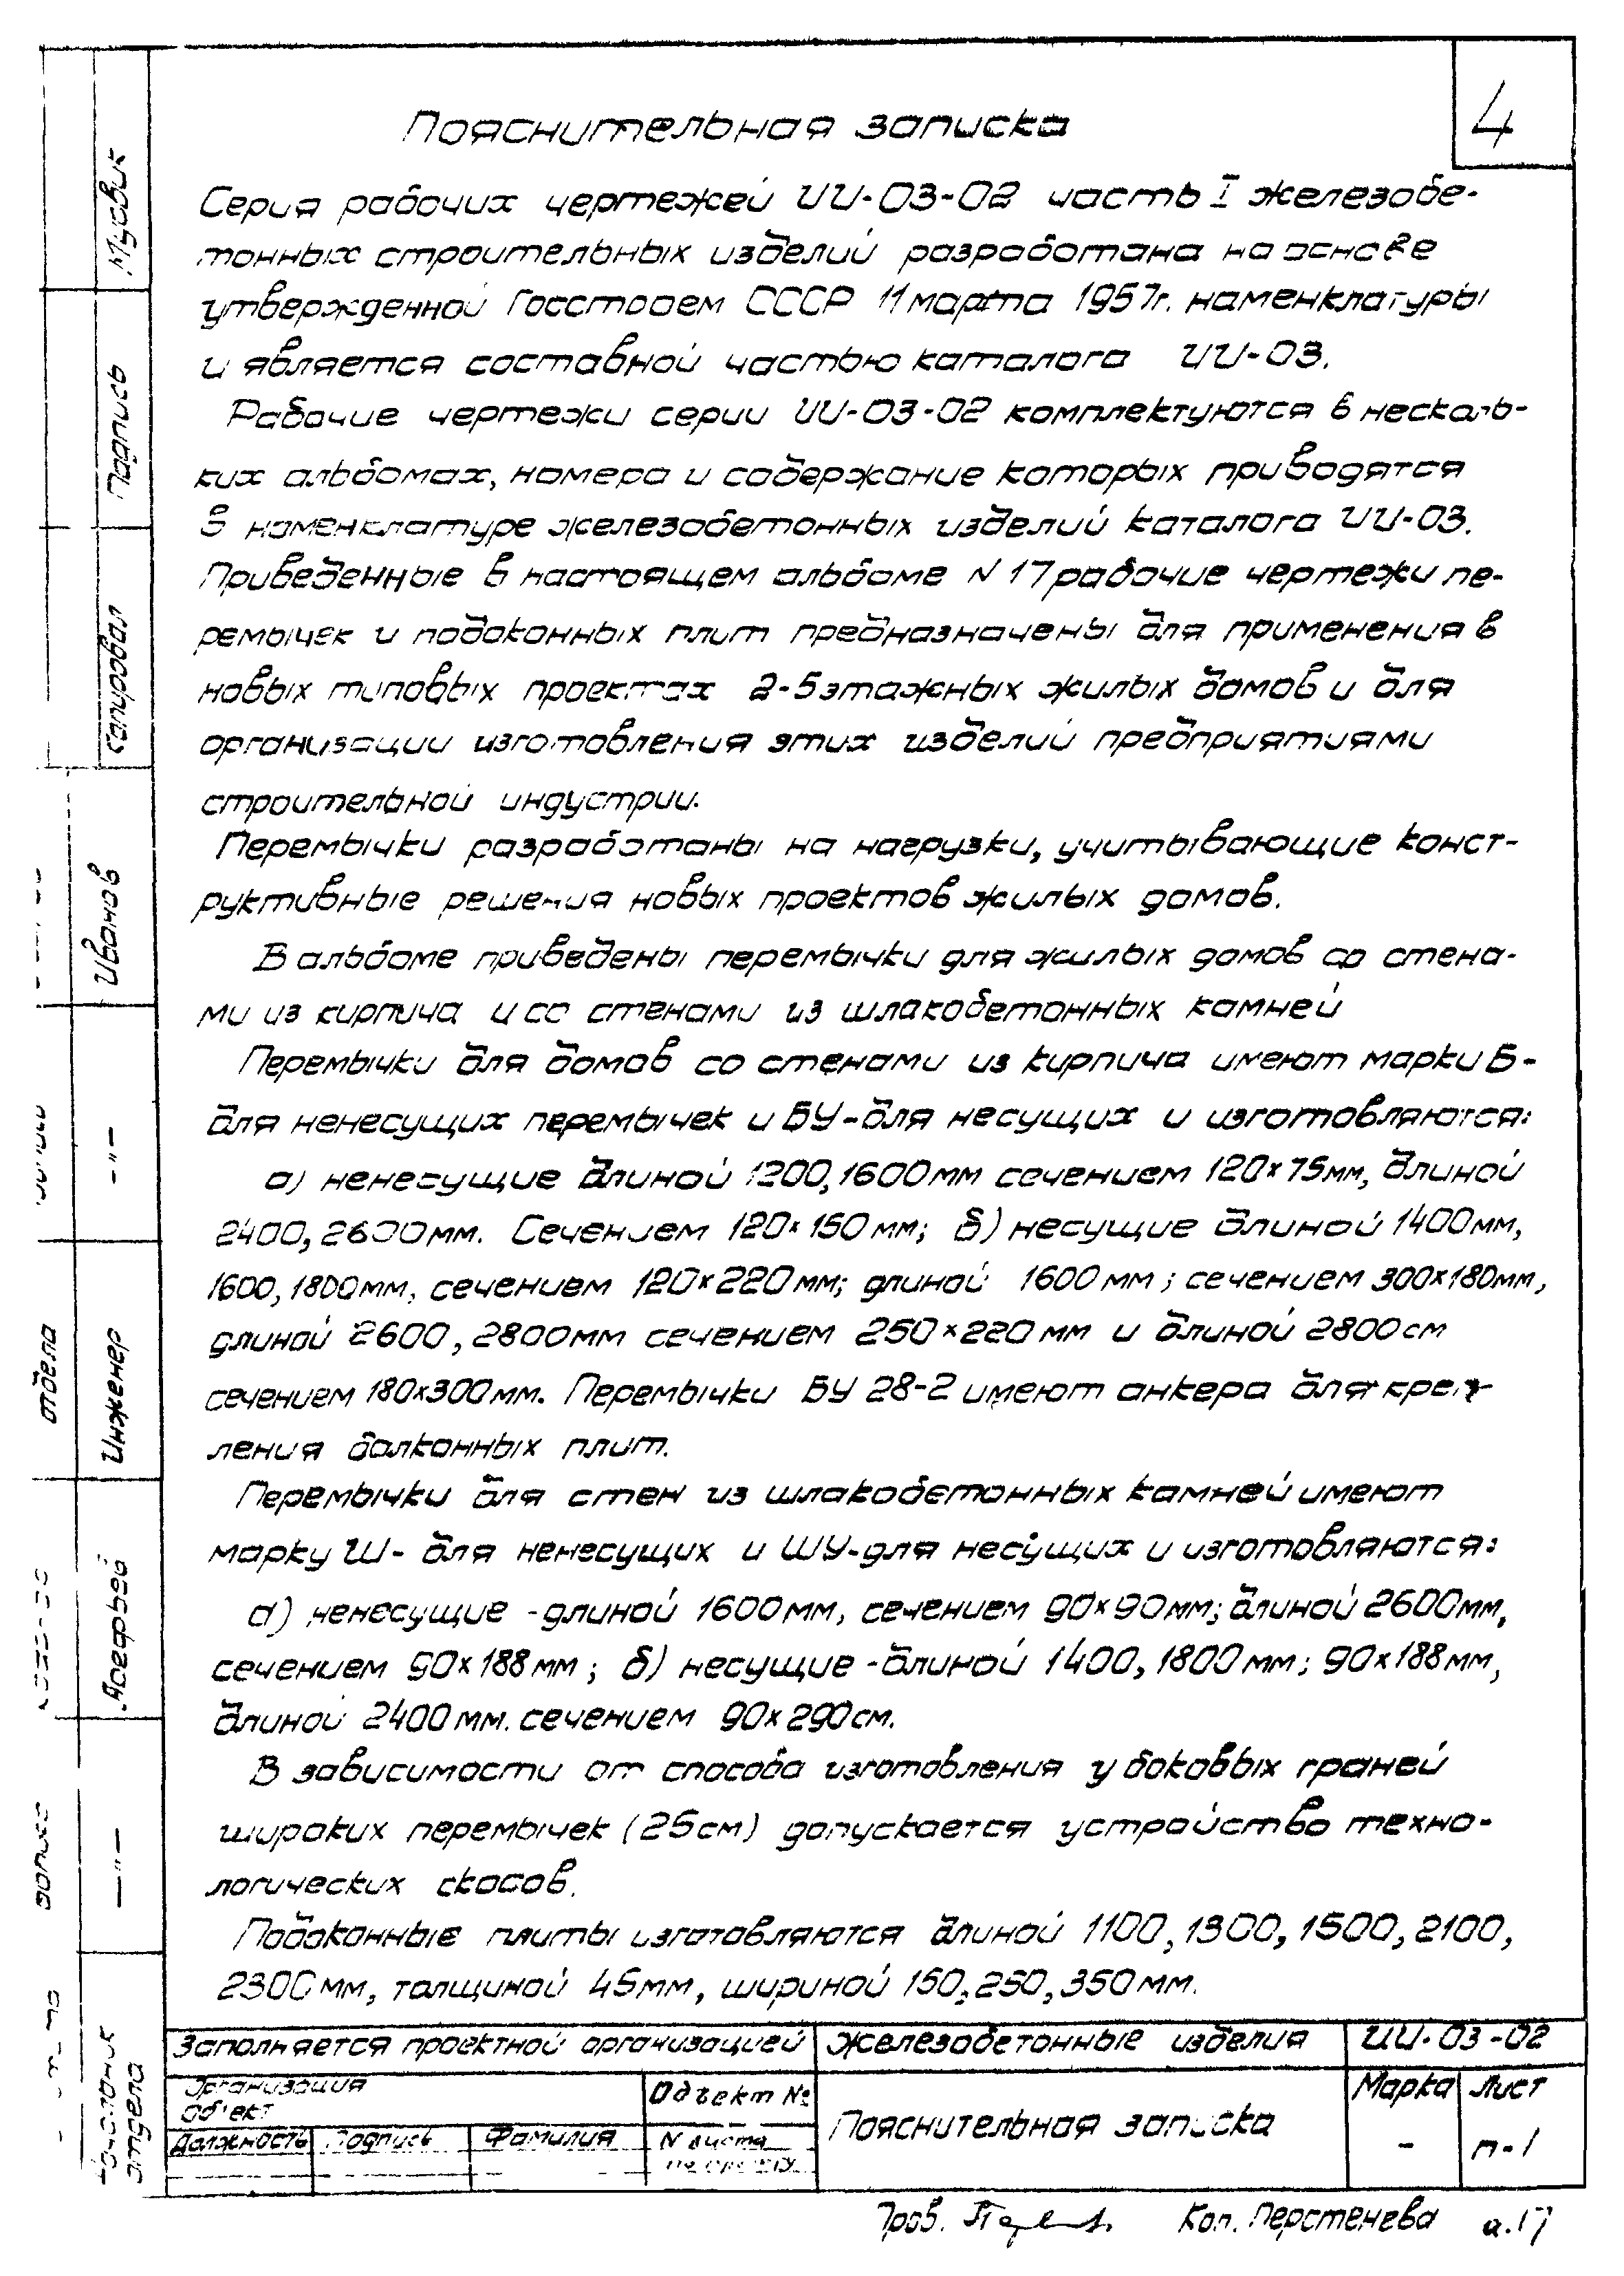 4
Пояснительная записка
Серия рабочих чертежей ИИ-03-02 часть I железобе-
тонных строительных изделий разработана на основе
утвержденной Госстроем СССР 11 марта 1957г. наменклатуры
и является составной частью каталога ИИ-03.
Рабочие чертежи серии ИИ-03-02 комплектуются в несколь-
ких альбомах, номера и содержание которых приводятся
в номенклатуре железобетонных изделий каталога ИИ-03.
Приведенные в настоящем альбоме N 17 рабочие чертежи пе-
ремычек и подоконных плит предназначены для применения в
новых типовых проектах 2-5 этажных жилых домов и для
организации изготовления этих изделий предприятиями
строительной индустрии.
Перемычки разработаны на нагрузки, учитывающие конст-
руктивные решения новых проектов жилых домов.
В альбоме приведены перемычки для жилых домов со стена-
ми из кирпича и со стенами из шлакобетонных камней
Перемычки для домов со стенами из кирпича имеют марки Б-
для ненесущих перемычек и БУ-для несущих и изготовляются:
а) ненесущие длиной 1200, 1600мм сечением 120×75мм, длиной
2400, 2600мм. Сечением 120×150 мм; б) несущие длиной 1400мм,
1600, 1800мм, сечением 120×220 мм; длиной 1600 мм; сечением 300×180мм,
длиной 2600, 2800мм сечением 250×220 мм и длиной 2800 см
сечением 180×300мм. Перемычки БУ 28-2 имеют анкера для креп-
ления балконных плит.
Перемычки для стен из шлакобетонных камней имеют
марку Ш- для ненесущих и ШУ-для несущих и изготовляются:
а) ненесущие -длиной 1600мм, сечением 90×90мм; длиной 2600мм,
сечением 90×188 мм; б) несущие -длиной 1400, 1800 мм; 90×188 мм,
длиной 2400 мм. сечением 90×290 см.
В зависимости от способа изготовления у боковых граней
широких перемычек (25 см) допускается устройство техно-
логических скосов.
Подоконные плиты изготовляются длиной 1100, 1300, 1500, 2100,
2300 мм, толщиной 45мм, шириной 150, 250, 350 мм.
Заполняется проектной организацией
Организация
Объект
Объект №
Должность Подпись Фамилия N листа
Железобетонные изделия
ИИ-03-02
Пояснительная записка
Марка Лист
- п-1
Пров. Коп. Перстенева а.17
Мусвик
Подпись
Копировал
Иванов
-"-
отдела
Инженер
-"-
Начальник
отдела